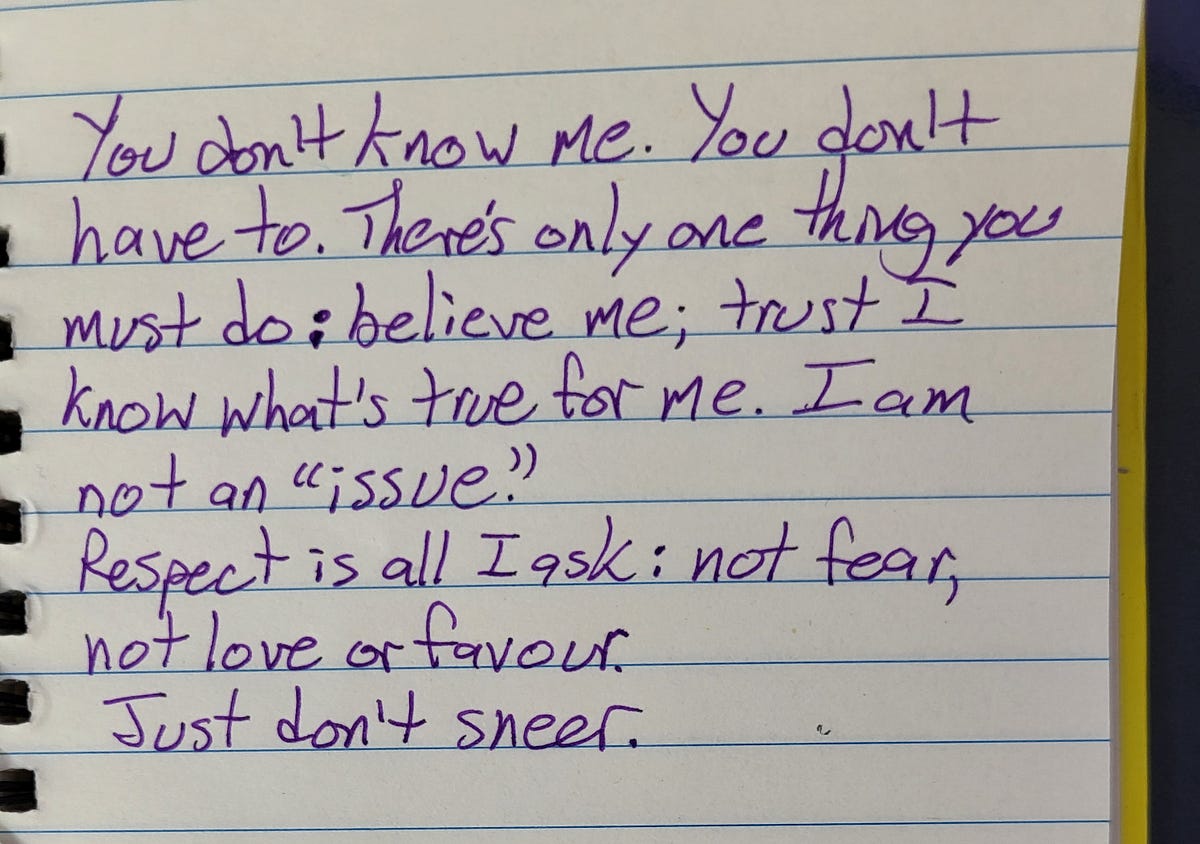 You don't know me. You don't
have to. There's only one thing you
must do: believe me; trust I
know what's true for me. I am
not an “issue.”
Respect is all I ask: not fear,
not love or favour.
Just don't sneer.